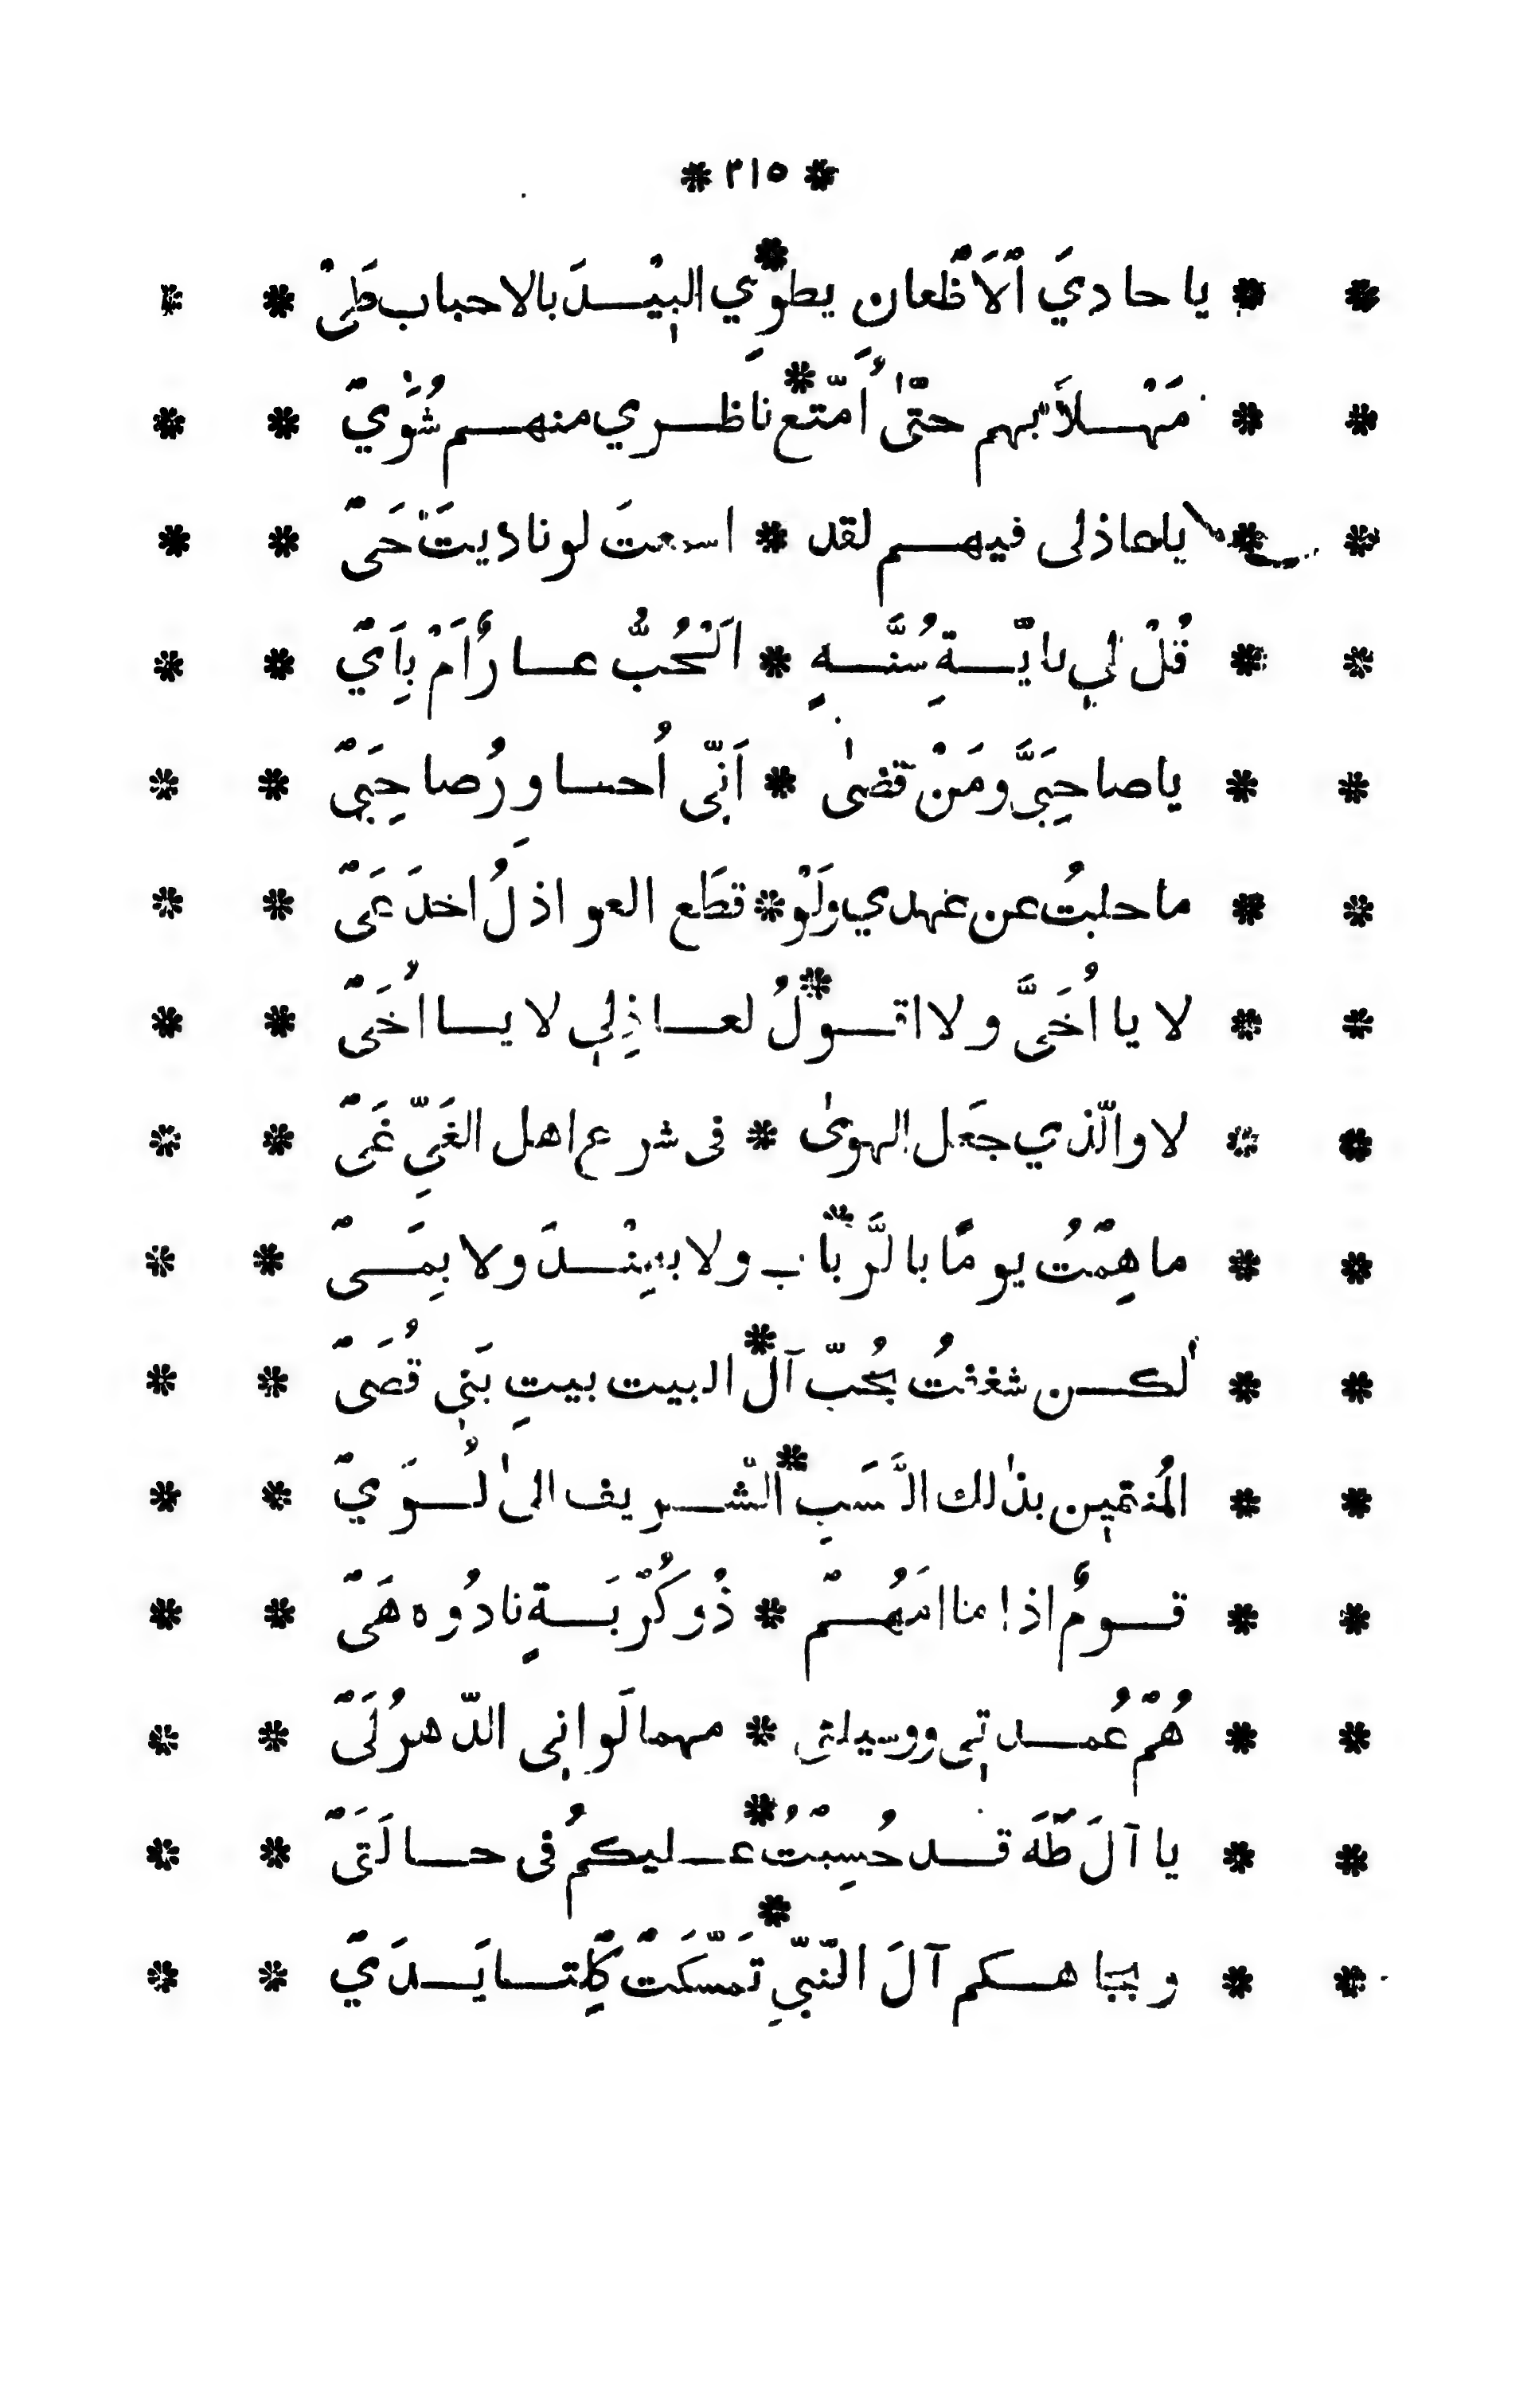 * ٣١٥ *
* * يا حاديَ اْلَاْظعانِ يطوِي * البيْدَ بالاحباب طَىْ * *
* * مَهْلاً بهم حتّىٰ أُمتّع * ناظري منهم شُوَيّ * *
* * يا عاذلى فيهم لقد * اسمعتَ لو ناديتَ حَىّ * *
* * قُلْ لي بايّةِ سُنَّةٍ * اَلْحُبُّ عارٌ اَمْ بِاَيّ * *
* * يا صاحِبَيَّ ومَنْ قضىٰ * اَنّى اُحاوِرُ صاحِبَىّ * *
* * ما حلتُ عن عهدي ولَوْ * قطَع العواذلُ اخدَعَىّ * *
* * لا يا اُخَىَّ ولا اقولُ * لعاذِلي لا يا اُخَىّ * *
* * لا والّذي جعَل الهوىٰ * فى شرع اهل الغَىِّ غَىّ * *
* * ما هِمْتُ يومًا بالرَّباب * ولا بهِنْدَ ولا بِمَىّ * *
* * لكن شغفتُ بحُبّ آل * البيت بيتِ بَني قُصَىّ * *
* * المُنتمين بذٰلك النَّسَبِ * الشّريف الىٰ لُوَيّ * *
* * قومٌ اذا ما امَّهُمْ * ذُو كُرْبَةٍ نادُوه هَىّ * *
* * هُمْ عُمدتي ووسيلتى * مهما لَواني الدّهرُ لَىّ * *
* * يا آلَ طٰهَ قد حُسِبْتُ * عليكمُ فى حالَتَىّ * *
* * وبجاهكم آلَ النّبّيِ * تمسّكَتْ كِلتا يَدَيّ * *